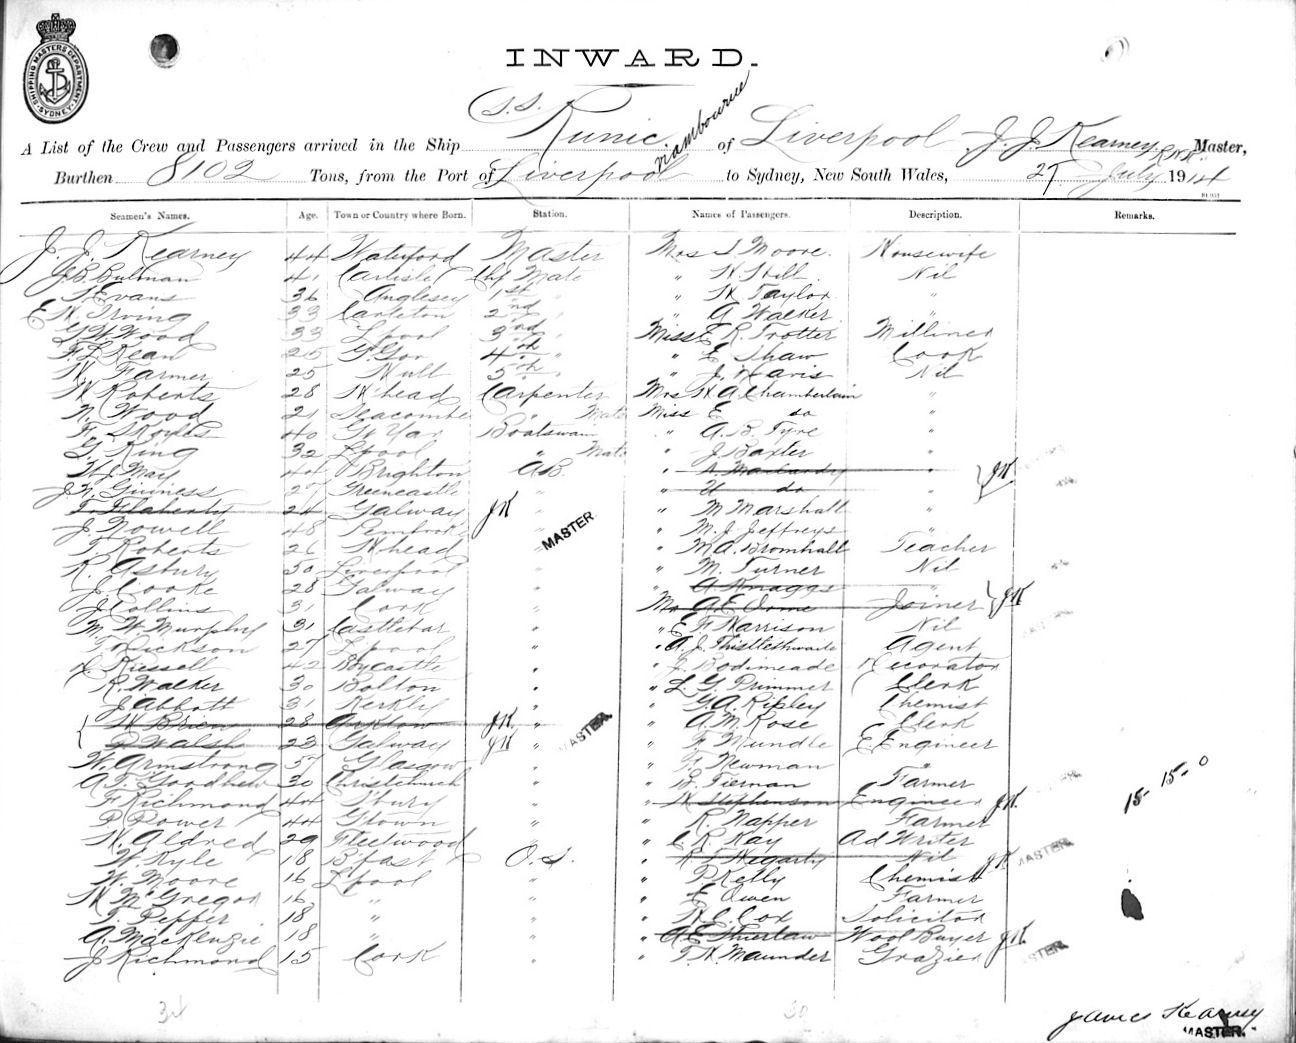 SHIPPING MASTERS DEPARTMENT SYDNEY
INWARD.
A List of the Crew and Passengers arrived in the Ship S.S. Runic of Liverpool J. J. Kearney R.N.R. Master,
Burthen 8102 Tons, from the Port of Liverpool to Sydney, New South Wales, 27 July 1914
Seamen's Names. Age. Town or Country where Born. Station. Names of Passengers. Description. Remarks.
J. J. Kearney 44 Waterford Master Mrs S. Moore Housewife
41 Carlisle Chf Mate " H Hill Nil
T. Evans 36 Anglesey 1st " " H Taylor "
E H. Irving 33 Carleton 2nd " " A Walker "
G H Wood 33 Lpool 3rd " Miss E R. Trotter Milliner
F. L Kean 25 4th " " E Shaw Cook
H. Farmer 25 Hull 5th " " J. Davis Nil
H Roberts 28 H'head Carpenter Mrs H A Chamberlain "
N. Wood 21 Seacombe " Mate Miss E do "
40 Gt Yar Boatswain " A. B. Tyre "
G. King 32 Lpool " Mate " J Baxter "
H. May Brighton AB " "
J. N. Guiness Greencastle " " do " JK
T. Flaherty 24 Galway JK " " M Marshall "
J Nowell 48 Pembroke " " M. J. Jeffreys "
T. Roberts 26 H'head " " M A. Bromhall Teacher
R. Asbury 30 Liverpool " " M. Turner Nil
J. Cooke 28 Galway " " A Knaggs "
J Collins 31 Cork " Mr A. E Orme Joiner JK
M. W. Murphy 31 Castlebar " " E F Harrison Nil
T Dickson 27 Lpool " " A. J. Thistlethwaite Agent
Russell 42 " " J. Bodimeade Decorator
R. Walker 30 Bolton " " L. G. Primmer Clerk
J Abbott " " G. A. Ripley Chemist
H Brien 28 Arklow JK " " A. M. Rose Clerk
P Walsh 23 Galway JK " " F. Mundle E Engineer
W. Armstrong 57 Glasgow " " F. Newman "
A. T. Goodhew 30 Christchurch " " B. Tiernan Farmer
F Richmond 44 " " H Stephenson Engineer JK 15-15-0
P Power 44 Gtown " " R. Napper Farmer
H. Aldred 29 Fleetwood " " C R. Kay Ad Writer
W. Kyle 18 B'fast O. S. " Hegarty Nil JK
W. Moore 16 Lpool " " P Kelly Chemist
H McGregor 16 " " " E Owen Farmer
T. Pepper 18 " " " H. C. Cox Solicitor
A. MacKenzie 18 " " " Wool Buyer JK
J Richmond 15 Cork " " T. H. Maunder Grazier
MASTER
MASTER
MASTER
MASTER
James Kearney
MASTER.